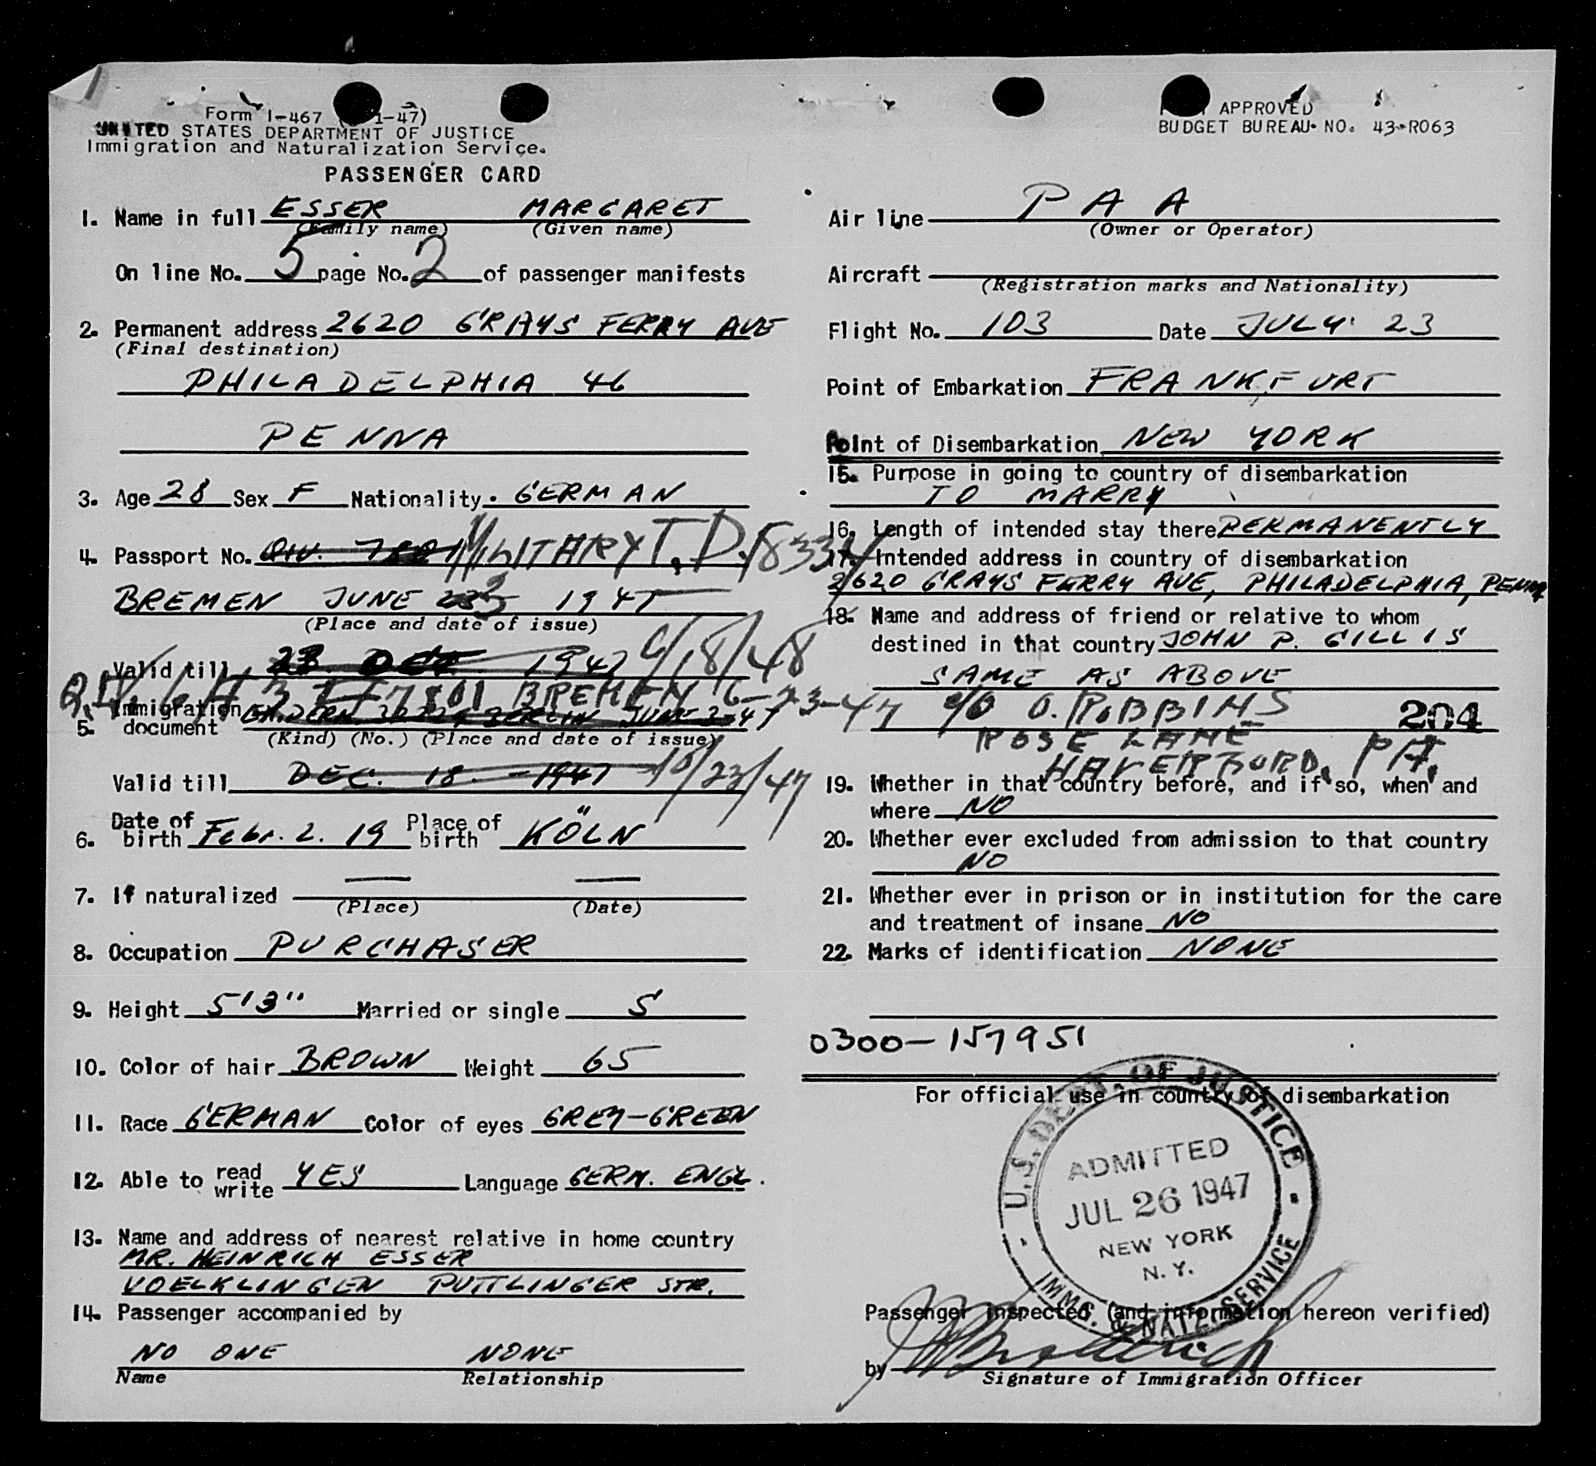 Form I-467 ( 1-47)
UNITED STATES DEPARTMENT OF JUSTICE
Immigration and Naturalization Service.
PASSENGER CARD
1. Name in full ESSER MARGARET
(Family name) (Given name)
On line No. 5 page No. 2 of passenger manifests
2. Permanent address 2620 GRAYS FERRY AVE
(Final destination)
PHILADELPHIA 46
PENNA
3. Age 28 Sex F Nationality. GERMAN
4. Passport No. MILITARY T.D. 18334
BREMEN JUNE 23 1947
(Place and date of issue)
Valid till 23 DEC 1947 6/18/48
Q.I.V. 7801 BREMEN 6-23-47
5. Immigration document BERLIN JUNE
(Kind) (No.) (Place and date of issue)
Valid till DEC. 18. -1947 10/23/47
6. Date of birth Febr. 2. 19 Place of birth KÖLN
7. If naturalized — —
(Place) (Date)
8. Occupation PURCHASER
9. Height 5'3" Married or single S
10. Color of hair BROWN Weight 65
11. Race GERMAN Color of eyes GREY-GREEN
12. Able to read write YES Language GERM. ENGL.
13. Name and address of nearest relative in home country
MR. HEINRICH ESSER
VOELKLINGEN PUTTLINGER STR.
14. Passenger accompanied by
NO ONE NONE
Name Relationship
APPROVED
BUDGET BUREAU NO. 43-R063
Air line PAA
(Owner or Operator)
Aircraft
(Registration marks and Nationality)
Flight No. 103 Date JULY 23
Point of Embarkation FRANKFURT
Point of Disembarkation NEW YORK
15. Purpose in going to country of disembarkation
TO MARRY
16. Length of intended stay there PERMANENTLY
17. Intended address in country of disembarkation
2620 GRAYS FERRY AVE, PHILADELPHIA, PENNA
18. Name and address of friend or relative to whom
destined in that country JOHN P. GILLIS
SAME AS ABOVE
c/o O. ROBBINS 204
ROSE LANE
HAVERFORD, PA.
19. Whether in that country before, and if so, when and
where NO
20. Whether ever excluded from admission to that country
NO
21. Whether ever in prison or in institution for the care
and treatment of insane NO
22. Marks of identification NONE
0300-157951
For official use in country of disembarkation
U.S. DEPT. OF JUSTICE
ADMITTED
JUL 26 1947
NEW YORK
N.Y.
IMMG. & NATZ. SERVICE
Passenger inspected (and information hereon verified)
by
Signature of Immigration Officer